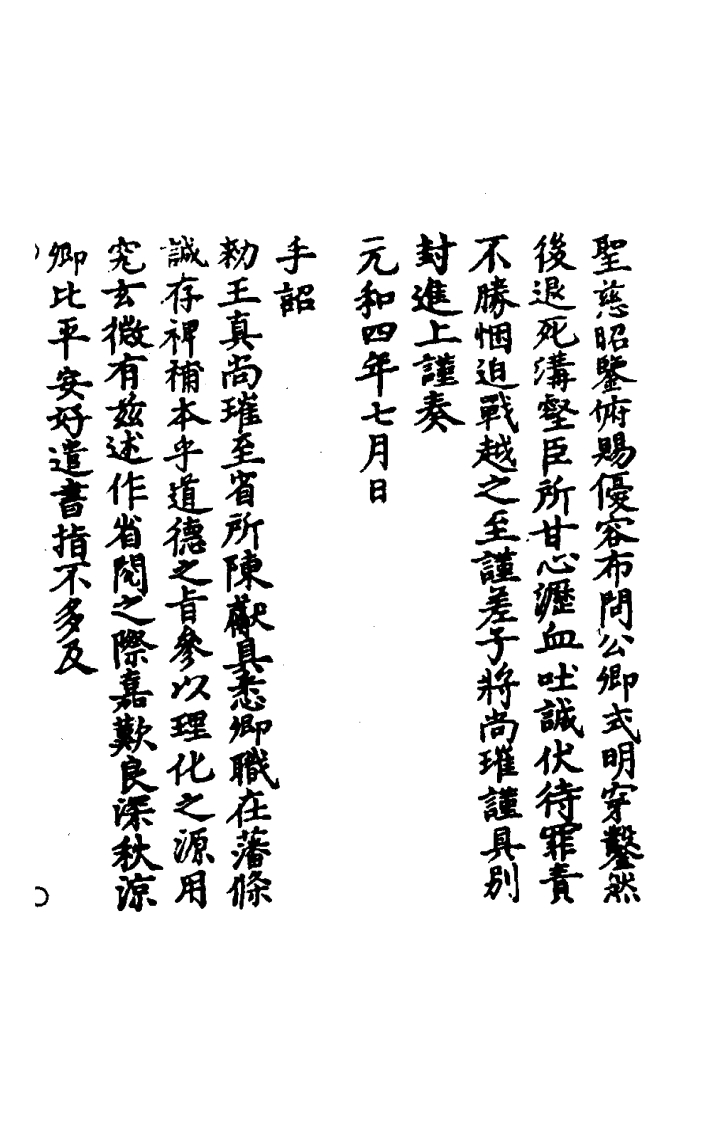 聖慈昭鑒俯賜優容布問公卿式明穿鑿然
後退死溝壑臣所甘心瀝血吐誠伏待罪責
不勝悃迫戰越之至謹差子將尚璀謹具別
封進上謹奏
元和四年七月日
手詔
勑王真尚璀至省所陳獻具悉卿職在藩條
誠存禆補本乎道德之旨參以理化之源用
究玄微有玆述作省閱之際嘉歎良深秋涼
卿比平安好遣書指不多及